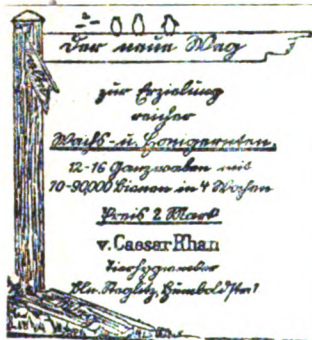 Der neue Weg
zur Erzielung
reicher
Wachs- u. Honigernten,
12-16 Ganzwaben mit
10-90,000 Bienen in 4 Wochen
Preis 2 Mark
v. Caesar Rhan
Tierhygieniker
Bln. Steglitz, Humboldstr 1